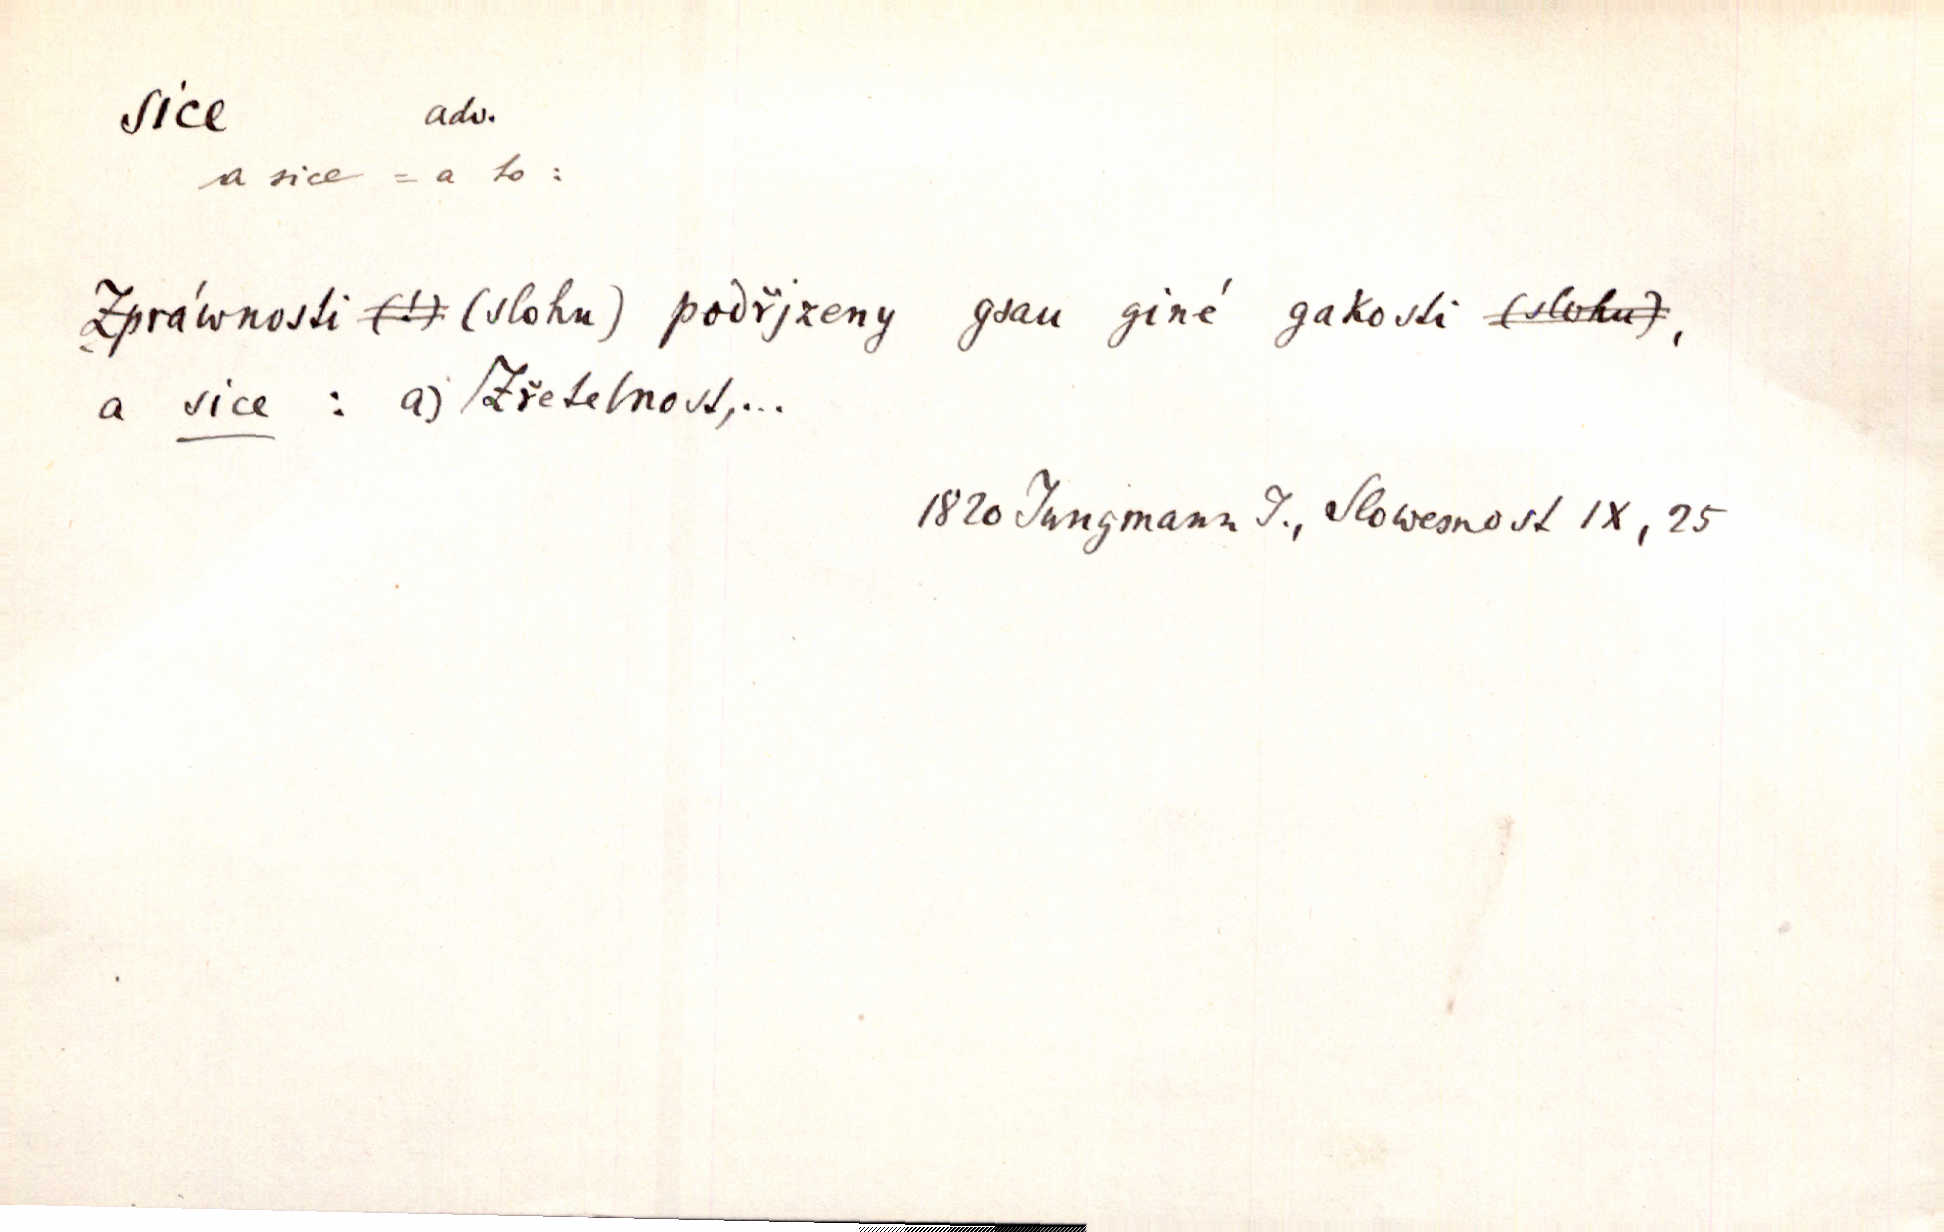 sice adv.
a sice = a to :
Zpráwnosti (!) (slohu) podřjzeny gsau giné gakosti (slohu),
a sice : a) Zřetelnost,...
1820 Jungmann J., Slowesnost IX, 25